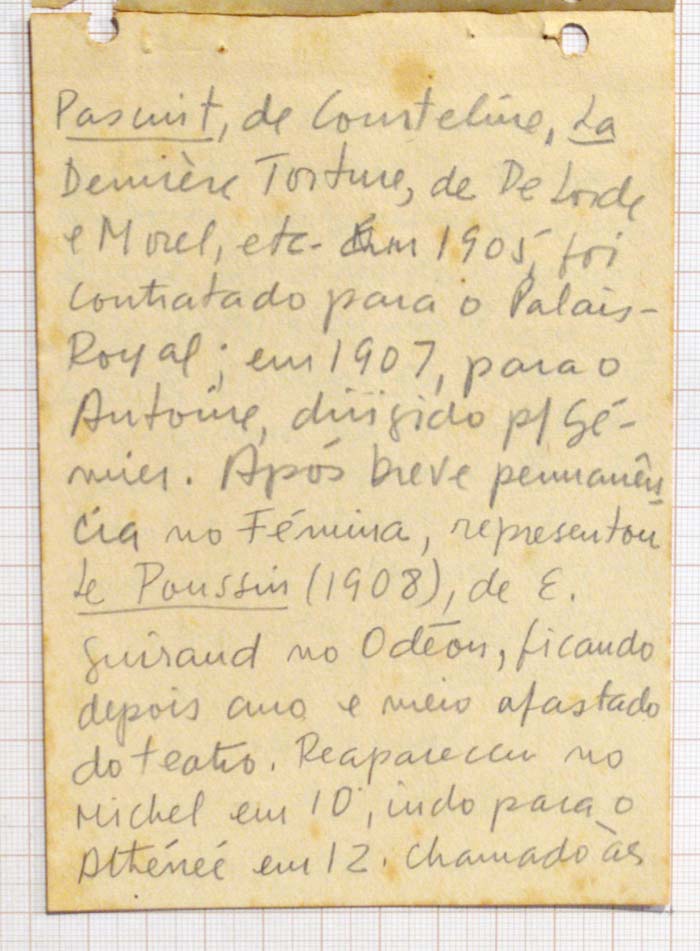 Pascuit, de Courteline, La
Dernière Torture, de De Lorde
e Morel, etc. Em 1905, foi
contratado para o Palais-
Royal; em 1907, para o
Antoine, dirigido p/ Gé-
mier. Após breve permanên-
cia no Fémina, representou
Le Poussin (1908), de E.
Guiraud no Odéon, ficando
depois ano e meio afastado
do teatro. Reapareceu no
Michel em 10, indo para o
Athéneé em 12. Chamado às